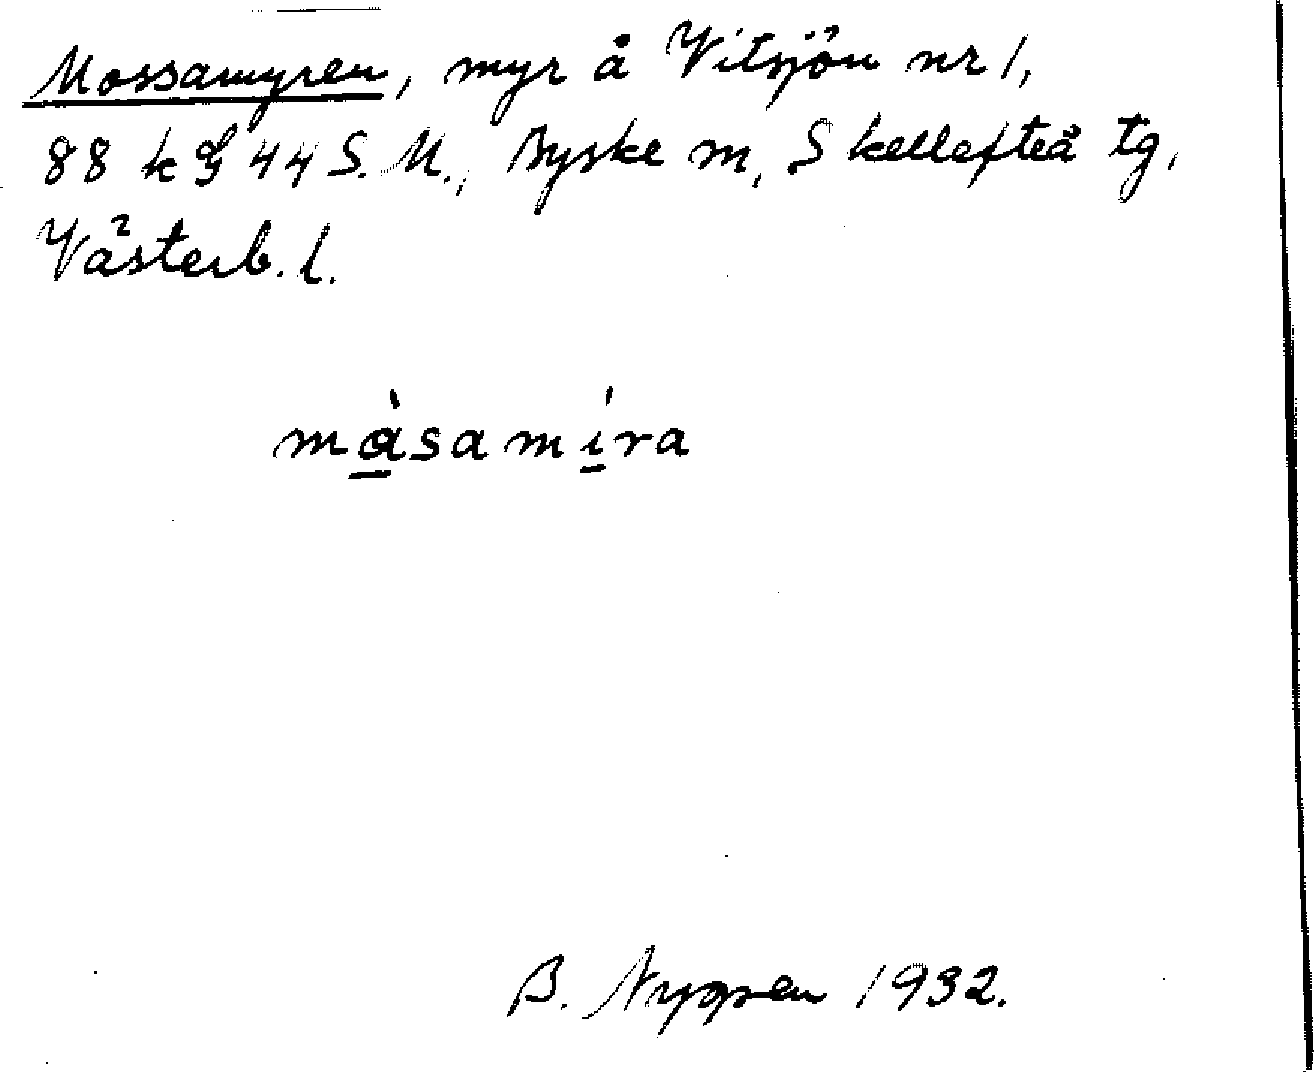 Mossamyren, myr å Vitsjön nr 1,
88 k § 44 S. M., Byske m, Skellefteå tg,
Västerb. l.
màsamíra
B. Nygren 1932.